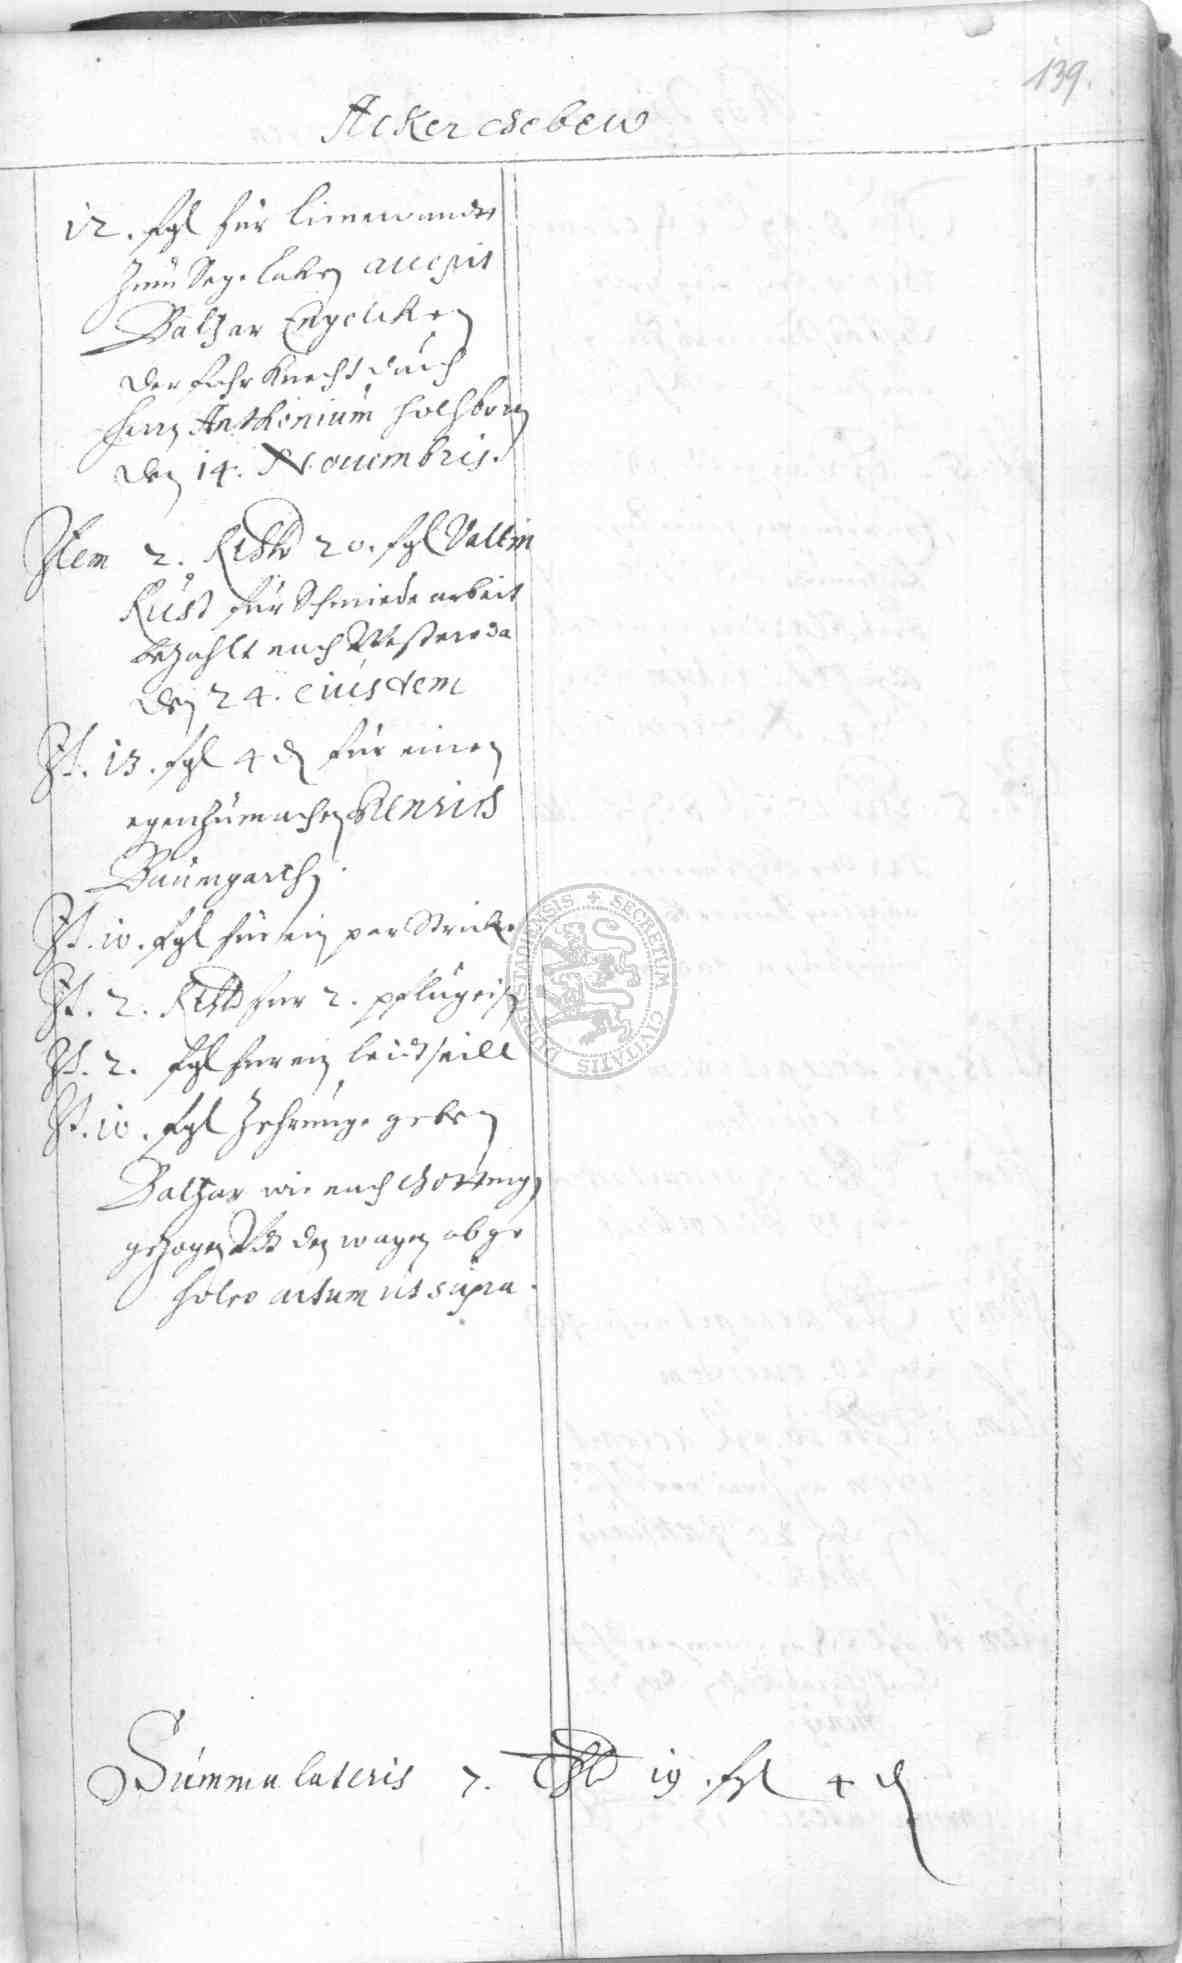 139.
Acker
12. fgl für linnewandt
zum Sege laken accepit
Baltzar Engelcken
der fuhr Knecht durch
Herrn Anthonium Holtzborn
den 14. Nouembris.
Item 2. Rthlr 20. fgl Valtin
Rust für Schmiede arbeit
bezahlt nach Westeroda
den 24. eiusdem
It. 13. fgl 4 d für einen
egen zu machen Henrich
Baumgarten.
It. 10. fgl für ein par Stricke
It. 2. Rthlr für 2. pflugeisen
It. 2. fgl für ein leidtseill
It. 10. fgl Zehrunge geben
Baltzar wie nach
gezogen den wagen abge
holet actum ut supra.
Summa lateris 7. Thlr 19. fgl 4 d
SECRETUM CIVITATIS DUDERSTADIENSIS